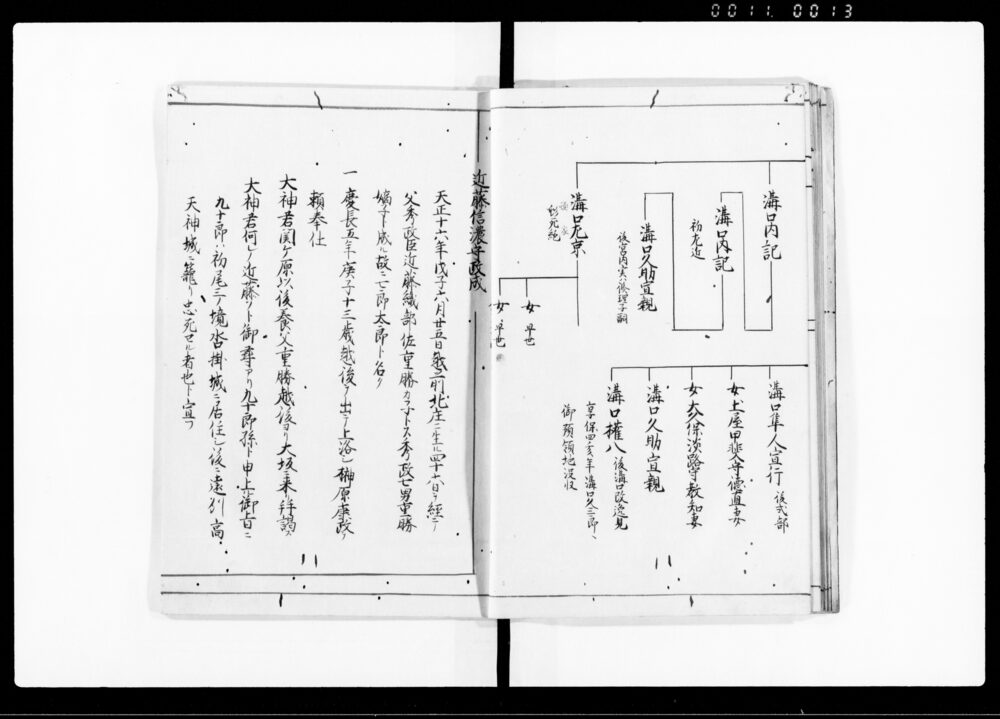 0011.0013
溝口内記
溝口内記
初左近
溝口久助宣親
後宮内実ハ修理子嗣
溝口左京
女 早世
女 早世
溝口隼人宣行 後式部
女 土屋甲斐守徳直妻
女 大久保淡路守教知妻
溝口久助宣親
溝口権八 後溝口改逸見
享保四亥年溝口久三郎ニ
御預領地没収
近藤信濃守政成
天正十六年戊子六月廿五日越前北庄ニ生ル四十六日ヲ経テ
父秀政臣近藤織部佐重勝カ子トス秀政七男重勝
嫡子ト成ル故ニ七郎太郎ト名ク
一 慶長五年庚子十三歳越後ヲ出テ上洛シ榊原康政ヲ
頼奉仕
大神君関ケ原以後養父重勝越後ヨリ大坂ニ来リ拝謁ス
大神君何レノ近藤ソト御尋アリ九十郎孫ト申上ル御上曰ニ
九十郎ハ初尾三ノ境沓掛城ニ居住シ後ニ遠州高
天神城ニ籠リ忠死セル者也ト宣フ